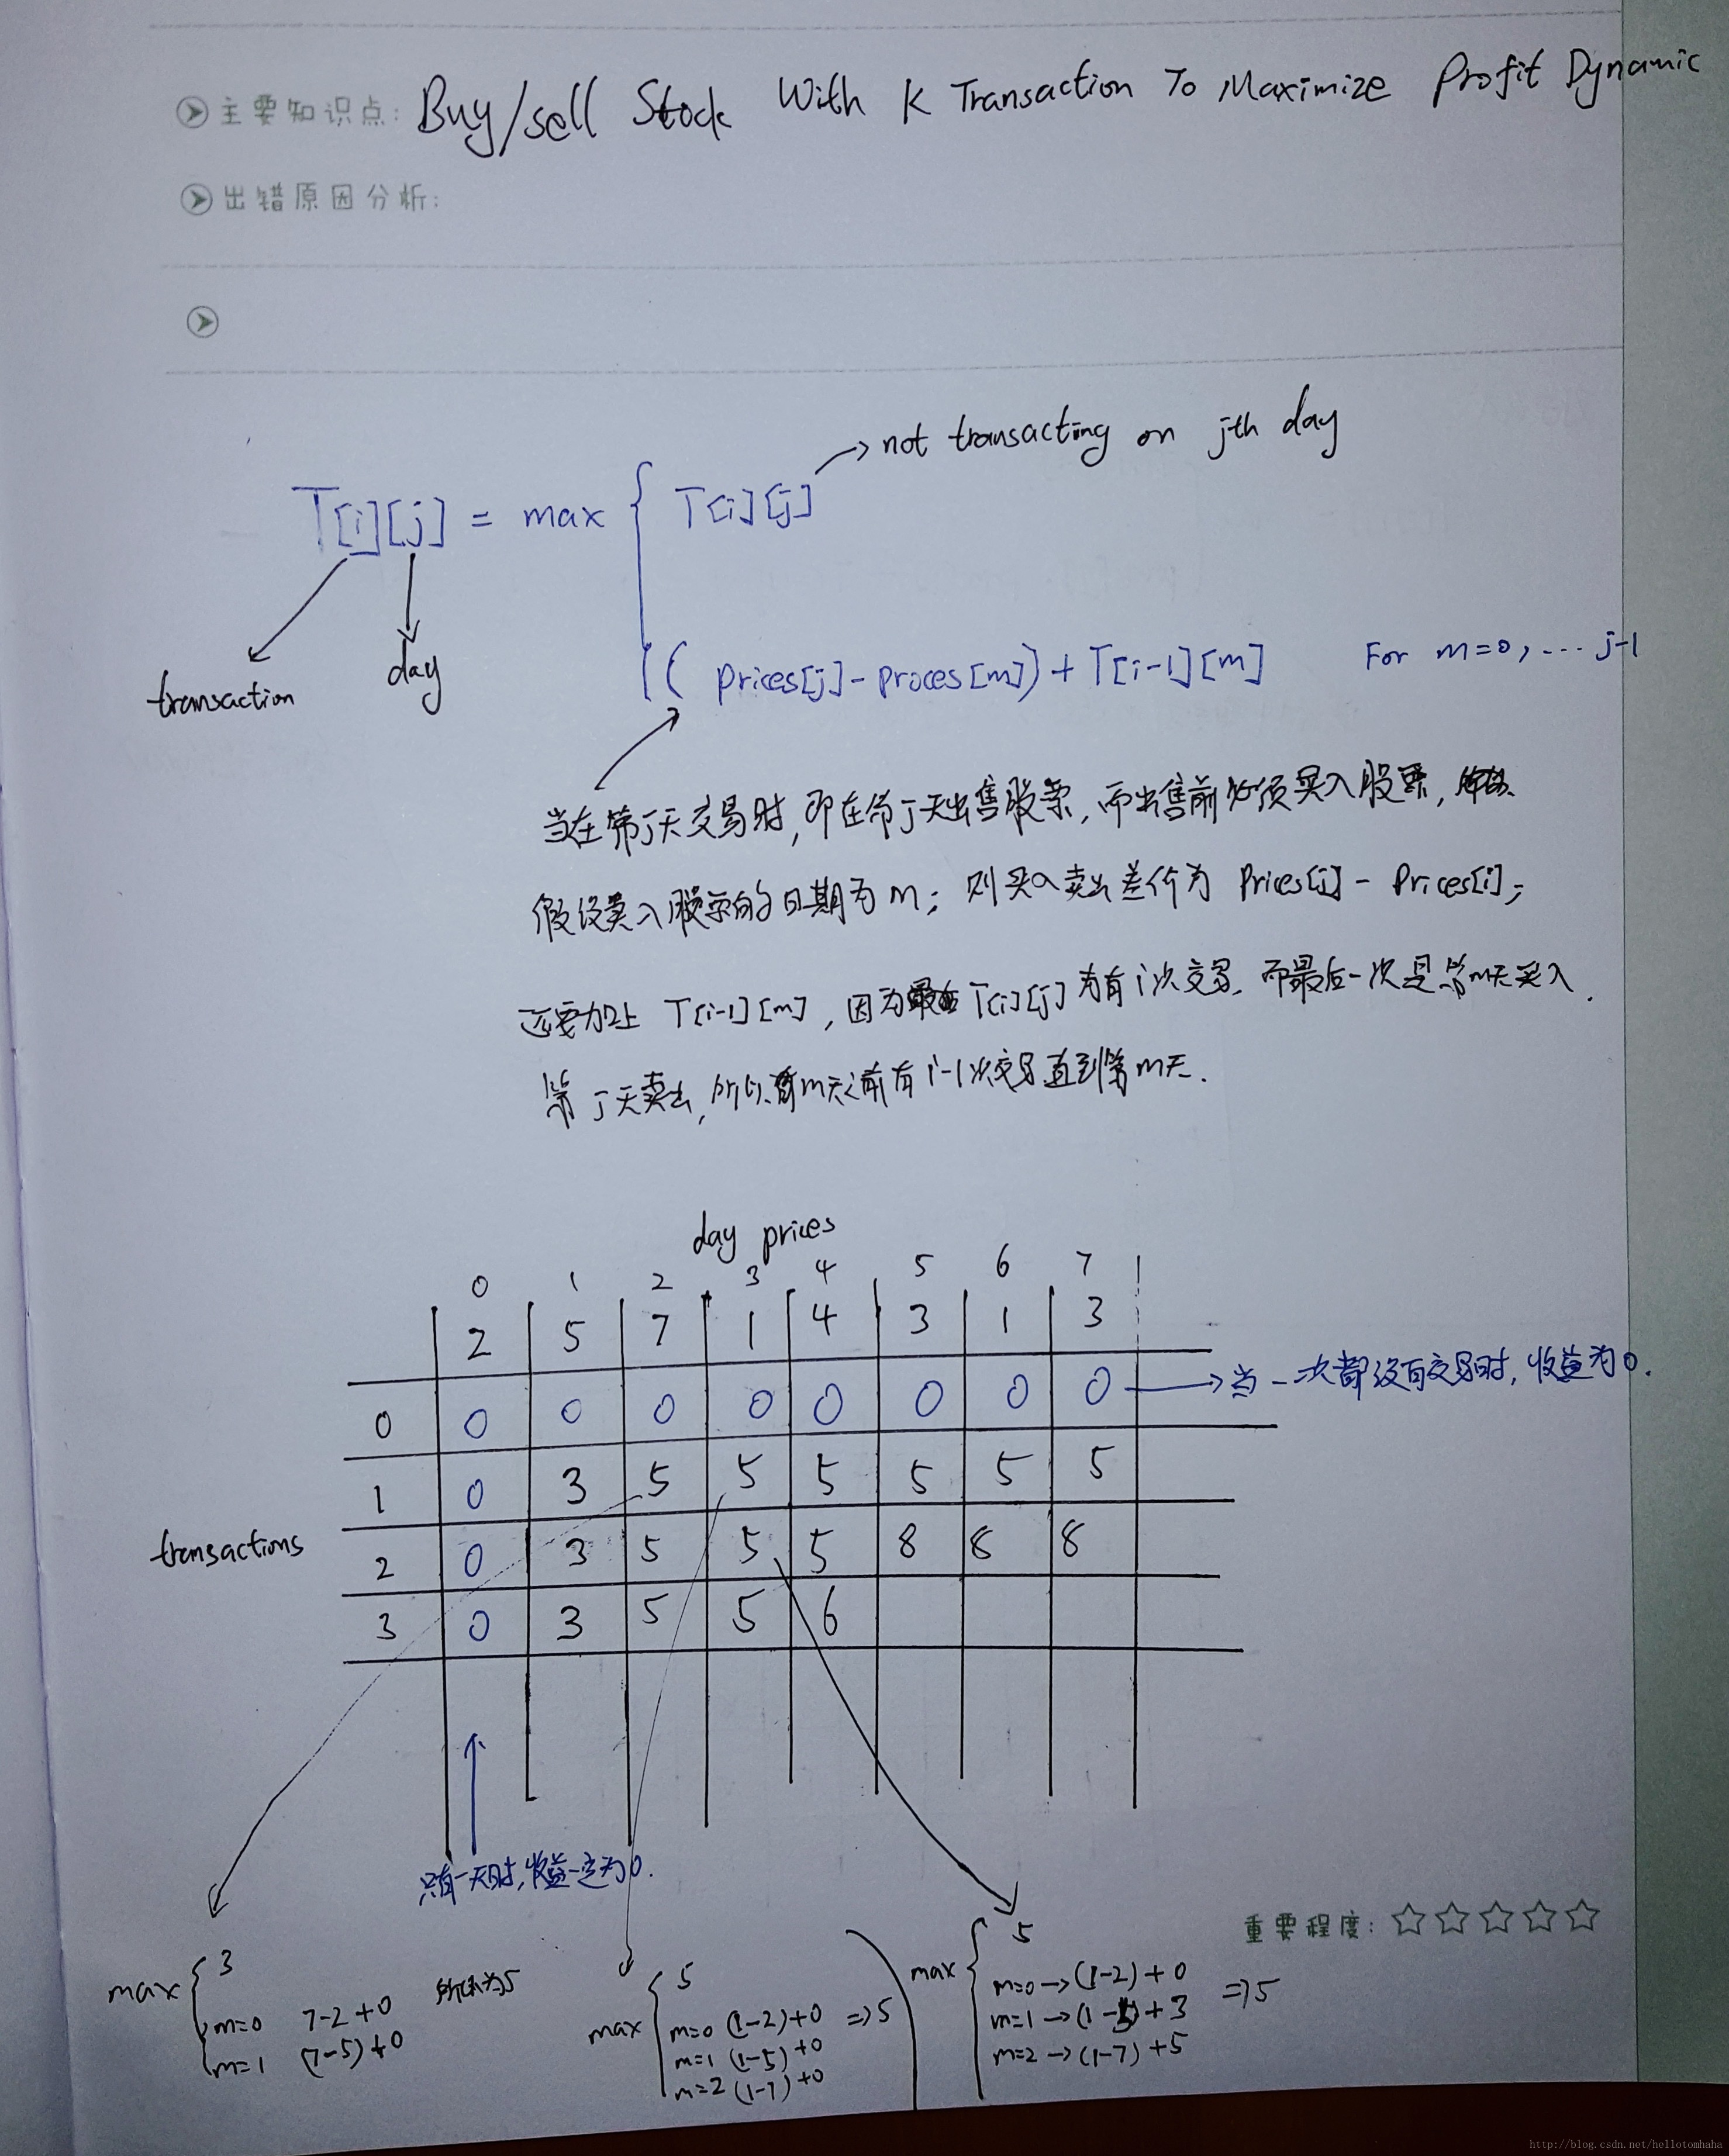 主要知识点: Buy/sell Stock With K Transaction To Maximize Profit Dynamic
出错原因分析:
not transacting on jth day
T[i][j] = max { T[i][j]
((prices[j]-proces[m])+T[i-1][m] For m=0, ... j-1
transaction
day
当在第j天交易时,即在第j天出售股票,而出售前必须买入股票,
假设买入股票的日期为m; 则买入卖出差价为 Prices[j] - Prices[i];
还要加上 T[i-1][m], 因为 T[i][j] 为有i次交易. 而最后一次是第m天买入.
第j天卖出,所以第m天之前有i-1次交易直到第m天.
day prices
0 1 2 3 4 5 6 7
2 5 7 1 4 3 1 3
0 0 0 0 0 0 0 0 0 当一次都没有交易时,收益为0.
1 0 3 5 5 5 5 5 5
transactions
2 0 3 5 5 5 8 8 8
3 0 3 5 5 6
只有一天时,收益一定为0.
重要程度:
max { 3
m=0 7-2+0
m=1 (7-5)+0
所以为5
max { 5
m=0 (1-2)+0 => 5
m=1 (1-5)+0
m=2 (1-7)+0
max { 5
m=0 → (1-2)+0
m=1 → (1-5)+3 => 5
m=2 → (1-7)+5
http://blog.csdn.net/hellotomhaha